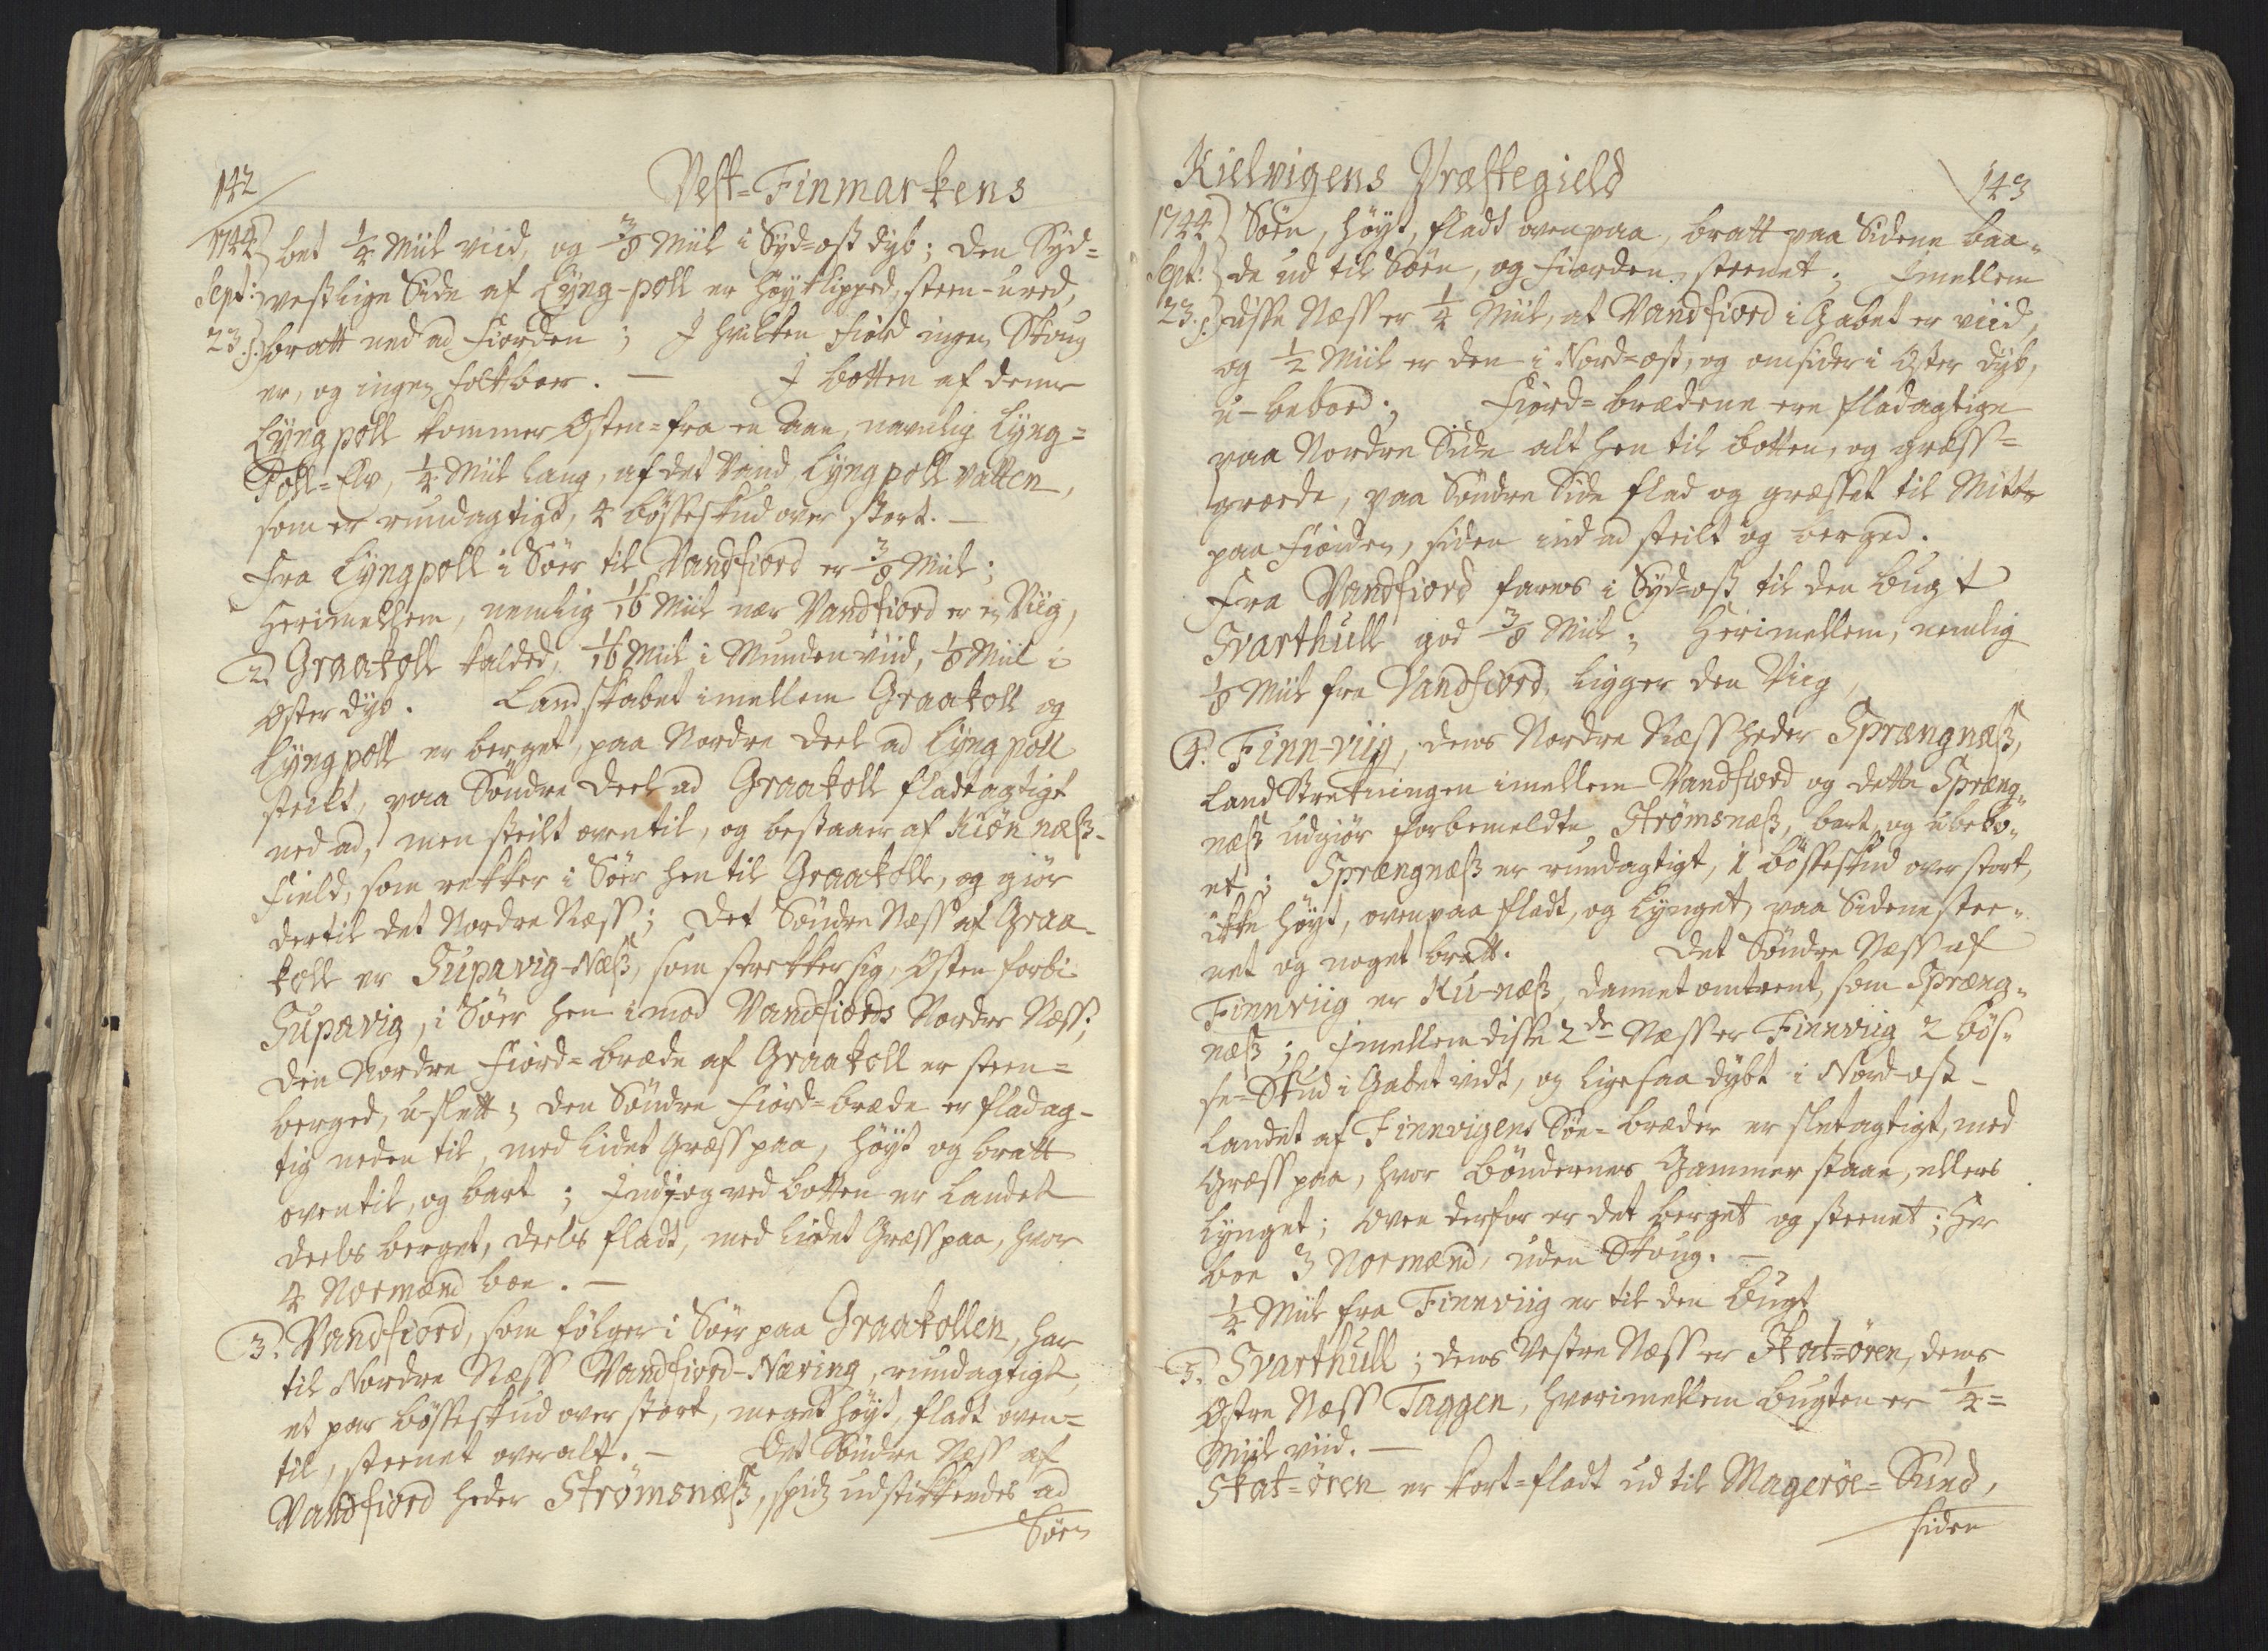 142
Vest=Finmarkens
1744 bet 1/4 Miil viid, og 3/8 Miil i Syd=ost dyb; den Syd=
Sept: vestlige Side af Lyng-poll er høy klipped, steen-ured,
23.) bratt ned ad Fiorden; I hvilken Fiord ingen Skoug
er, og ingen folk boer. — I Botten af denne
Lyngpoll kommer Østen=fra en Aae, navnlig Lyng=
Poll=Elv, 1/4 Miil lang, af det Vand Lyngpoll vatten,
som er rundagtigt, 4 bösseskud over stort. —
Fra Lyngpoll i Sör til Vandfiord er 3/8 Miil;
Herimellem, nemlig 1/16 Miil nær Vandfiord er en Viig,
2. Graakoll kalded, 1/16 Miil i Munden viid, 1/8 Miil i
Øster dyb. Landskabet imellem Graakoll og
Lyngpoll er berget, paa Nordre deel ad Lyngpoll
steilt, paa Søndre deel ad Graakoll fladtagtigt
ned ad, men steilt oventil, og bestaaer af Kiönnæss-
Field, som rekker i Sör hen til Graakoll, og giör
dertil det Nordre Næss; det Søndre Næss af Graa-
koll er Supavig-Næss, som strekker sig, Østen forbi
Supavig, i Söer hen imod Vandfiords Nordre Næss;
den Nordre Fiord=bræde af Graakoll er steen=
berged, u-slett; den Söndre Fiord=bræde er fladag-
tig neden til, med lidet Græss paa, höyt og bratt
oventil, og bart; Indi og ved botten er landet
deels berget, deels fladt, med lidet Græss paa, hvor
4 Normænd boe. —
3. Vandfiord, som fölger i Söer paa Graakollen, har
til Nordre Næss Vandfiord-Næring, rundagtigt,
et par bösseskud over stort, meget höyt, fladt oven=
til, steenet overalt. — Det Söndre Næss af
Vandfiord heder Strømsnæss, spidz udstikkendes ad
Söen
Kielvigens Præstegield
143
1744 Söen, höyt, fladt ovenpaa, bratt paa Sidene baa=
Sept: de ud til Söen, og Fiorden, steenet; Imellem
23.) disse Næss er 1/4 Miil, at Vandfiord i Gabet er viid,
og 1/2 Miil er den i Nord=ost, og omsider i Øster dyb,
u-beboed; Fiord=brædene ere fladagtige
paa Nordre Side alt hen til botten, og græss=
groede, paa Söndre Side flad og græsset til Mitte
paa Fiorden, siden ind ad steilt og berged.
Fra Vandfiord fares i Syd=ost til den bugt
Svarthull god 3/8 Miil; Herimellem, nemlig
1/8 Miil fra Vandfiord, ligger den Viig
4. Finn-viig, dens Nordre Næss heder Sprængnæss,
Landstrekningen imellem Vandfiord og dette Spræng=
næss udgiör forbemeldte Strømsnæss, bart, og ubebo=
et; Sprængnæss er rundagtigt, 1 bösseskud over stort,
ikke höyt, ovenpaa fladt, og lynget, paa Sidene stee=
net og noget bratt. Det Söndre Næss af
Finnviig er Ku-næss, dannet omtrent, som Spræng=
næss; Imellem disse 2de Næss er Finnviig 2 bös=
se=Skud i Gabet vidt, og ligesaa dybt i Nord-ost —
Landet af Finnvigens Söe=bræder er sletagtigt, med
Græss paa, hvor böndernes Gammer staae, ellers
lynget; oven derfor er det berget og steenet; Her
boe 3 Normænd, uden Skoug. —
1/4 Miil fra Finnviig er til den bugt
5. Svarthull; dens Vestre Næss er Skat=ören, dens
Østre Næss Taggen, hvorimellem bugten er 1/4=
Miil viid. —
Skat=ören er kort=fladt ud til Mageröe=Sund,
siden